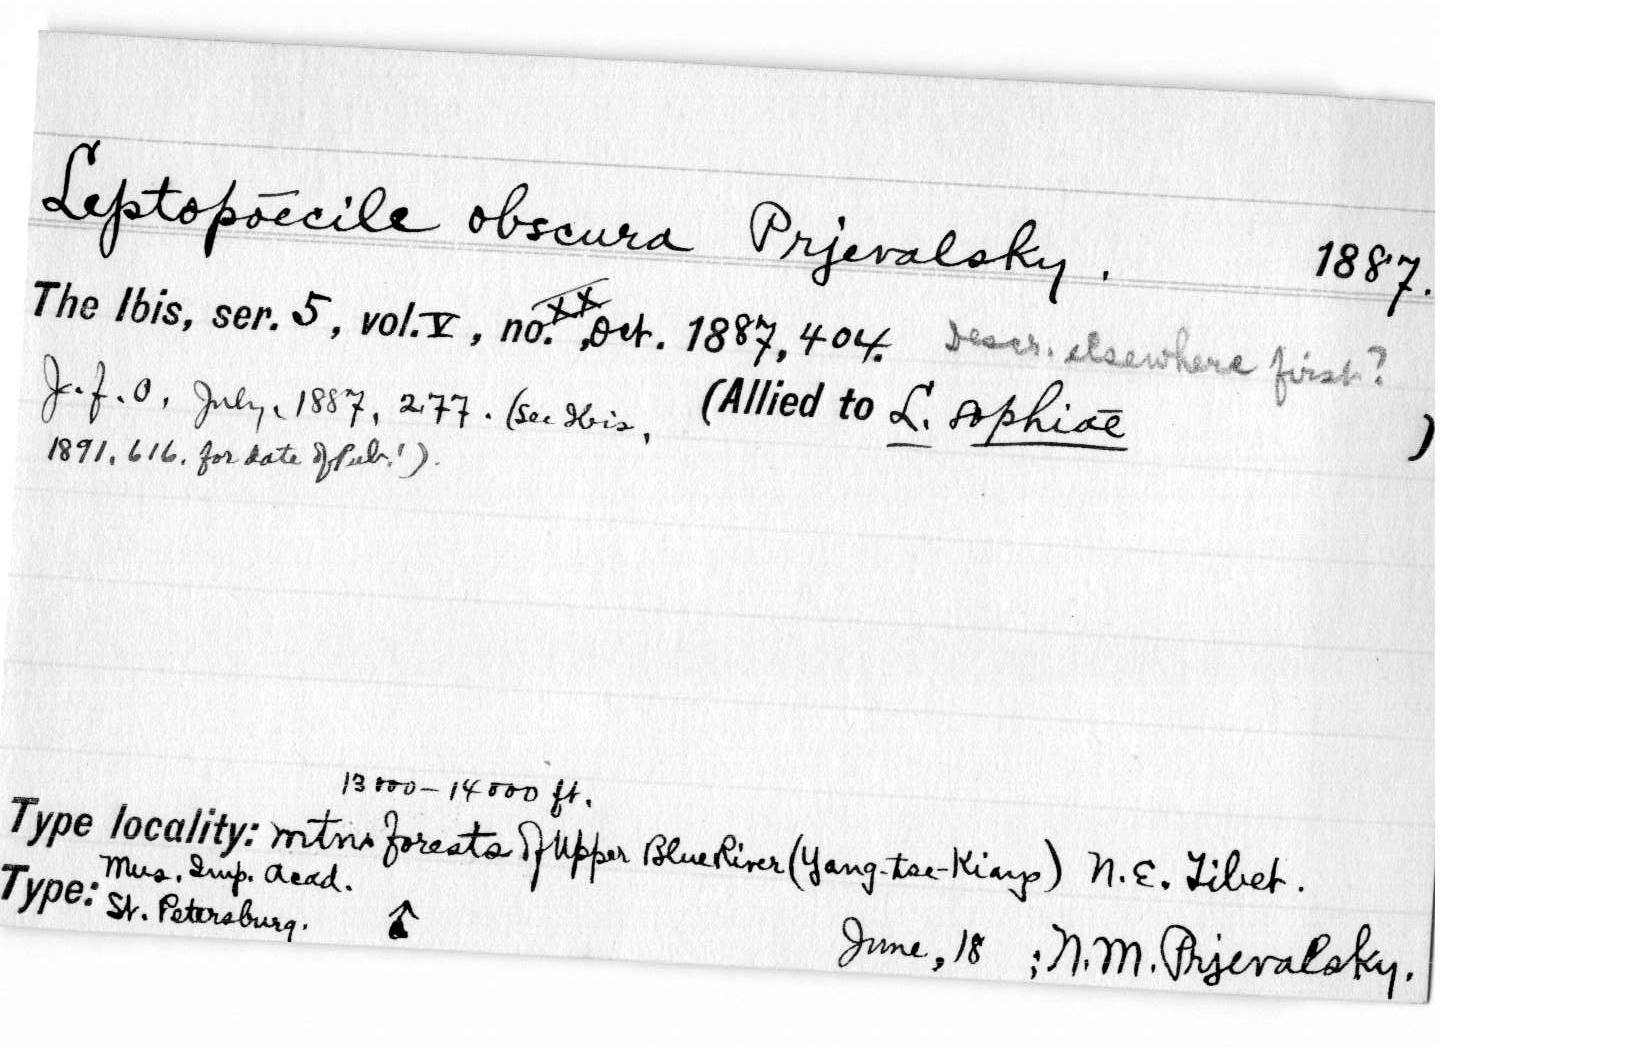 Leptopōecile obscura Prjevalsky. 1887.
The Ibis, ser. 5, vol. V, no. XX, Oct. 1887, 404. Descr. elsewhere first?
J.f.O., July, 1887, 277. (See Ibis, (Allied to L. sophiae )
1891, 616. for date of Pub.!).
13000–14000 ft.
Type locality: mtns forests of Upper Blue River (Yang-tse-Kiang) N.E. Tibet.
Type: Mus. Imp. Acad.
St. Petersburg. ↑
June, 18 ; N.M. Prjevalsky.